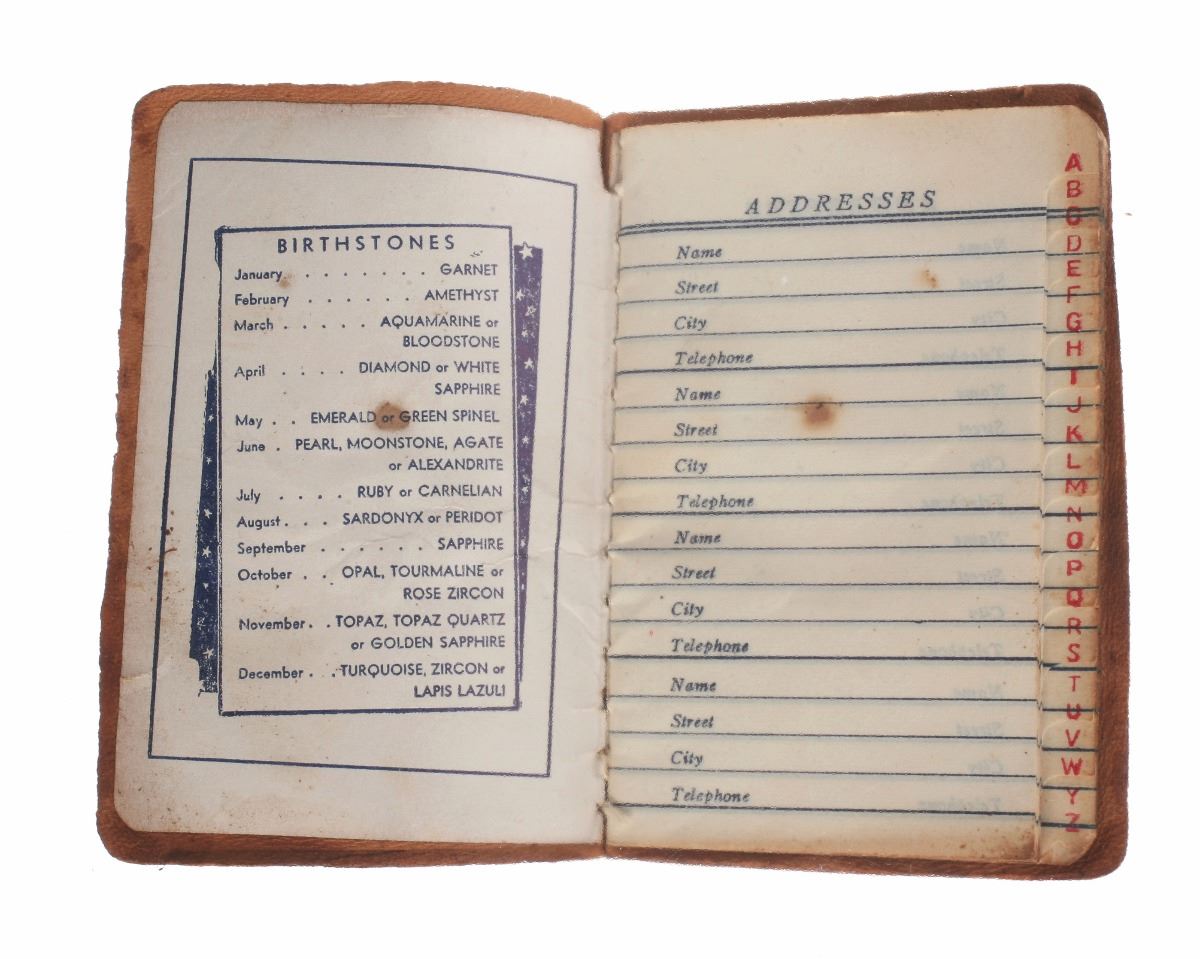 BIRTHSTONES
January . . . . . . . GARNET
February . . . . . . AMETHYST
March . . . . . AQUAMARINE or
BLOODSTONE
April . . . . DIAMOND or WHITE
SAPPHIRE
May . . EMERALD or GREEN SPINEL
June . PEARL, MOONSTONE, AGATE
or ALEXANDRITE
July . . . . RUBY or CARNELIAN
August . . . SARDONYX or PERIDOT
September . . . . . . . SAPPHIRE
October . . OPAL, TOURMALINE or
ROSE ZIRCON
November . . TOPAZ, TOPAZ QUARTZ
or GOLDEN SAPPHIRE
December . . . TURQUOISE, ZIRCON or
LAPIS LAZULI
ADDRESSES
Name
Street
City
Telephone
Name
Street
City
Telephone
Name
Street
City
Telephone
Name
Street
City
Telephone
A
B
C
D
E
F
G
H
I
J
K
L
M
N
O
P
Q
R
S
T
U
V
W
Y
Z